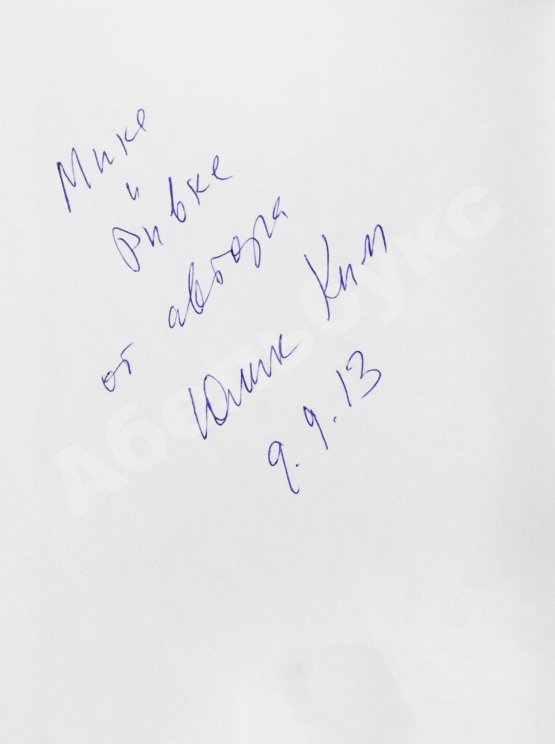 Мике
и
Ривке
от автора
Юлик Ким
9.9.13
Абельбукс